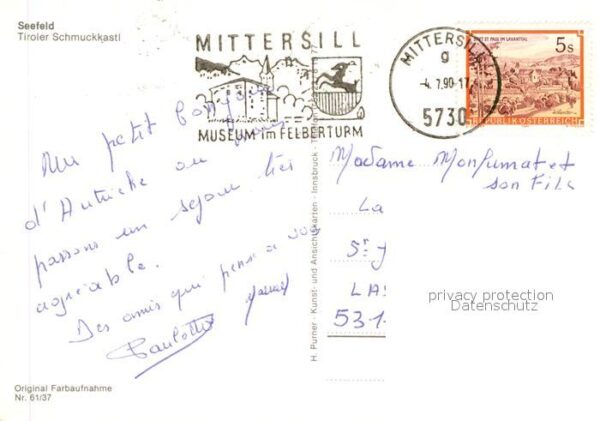 Seefeld
Tiroler Schmuckkastl
MITTERSILL
MUSEUM im FELBERTURM
MITTERSILL
g
4. 7.90-17
5730
STIFT ST. PAUL IM LAVANTTAL
5s
REPUBLIK ÖSTERREICH
Un petit bonjour
d'Autriche ou nous
passons un sejour très
agréable.
Des amis qui pense a vous
Paulette
Madame Monfumat et
son Fils
La
St J
LAS
531
privacy protection
Datenschutz
H. Purner - Kunst- und Ansichtskarten - Innsbruck -
Original Farbaufnahme
Nr. 61/37